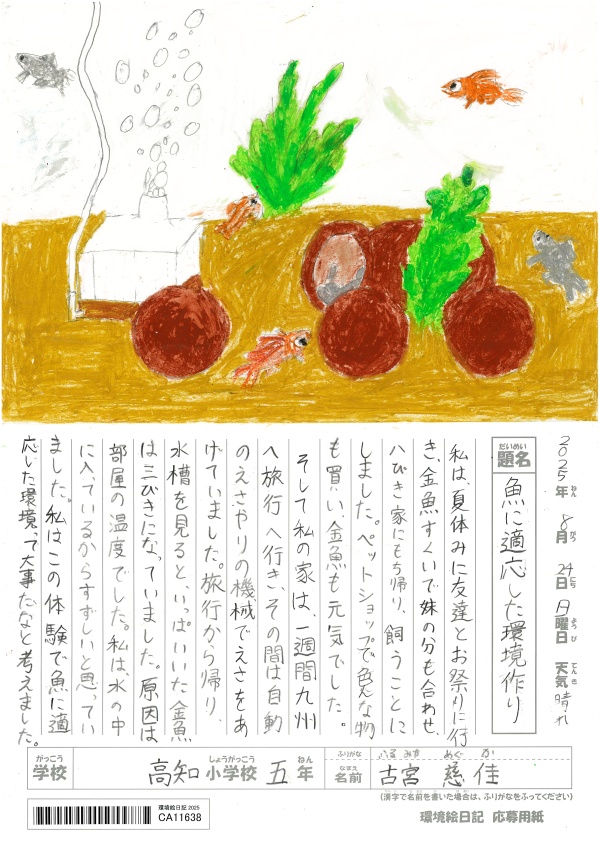 2025年 8月 24日 日曜日 天気 晴れ
ねん がつ にち ようび てんき
だいめい
題名
魚に適応した環境作り
私は、夏休みに友達とお祭りに行
き、金魚すくいで妹の分も合わせ、
八ぴき家にもち帰り、飼うことに
しました。ペットショップで色んな物
も買い、金魚も元気でした。
そして私の家は、一週間九州
へ旅行へ行き、その間は自動
のえさやりの機械でえさをあ
げていました。旅行から帰り、
水槽を見ると、いっぱいいた金魚
は三びきになっていました。原因は
部屋の温度でした。私は、水の中
に入っているからすずしいと思ってい
ました。私はこの体験で魚に適
応した環境って大事だなと考えました。
がっこう しょうがっこう ねん
学校 高知 小学校 五 年
ふりがな ふるみや めぐか
なまえ
名前 古宮 慈佳
(漢字で名前を書いた場合は、ふりがなをふってください)
環境絵日記 2025
CA11638
環境絵日記 応募用紙